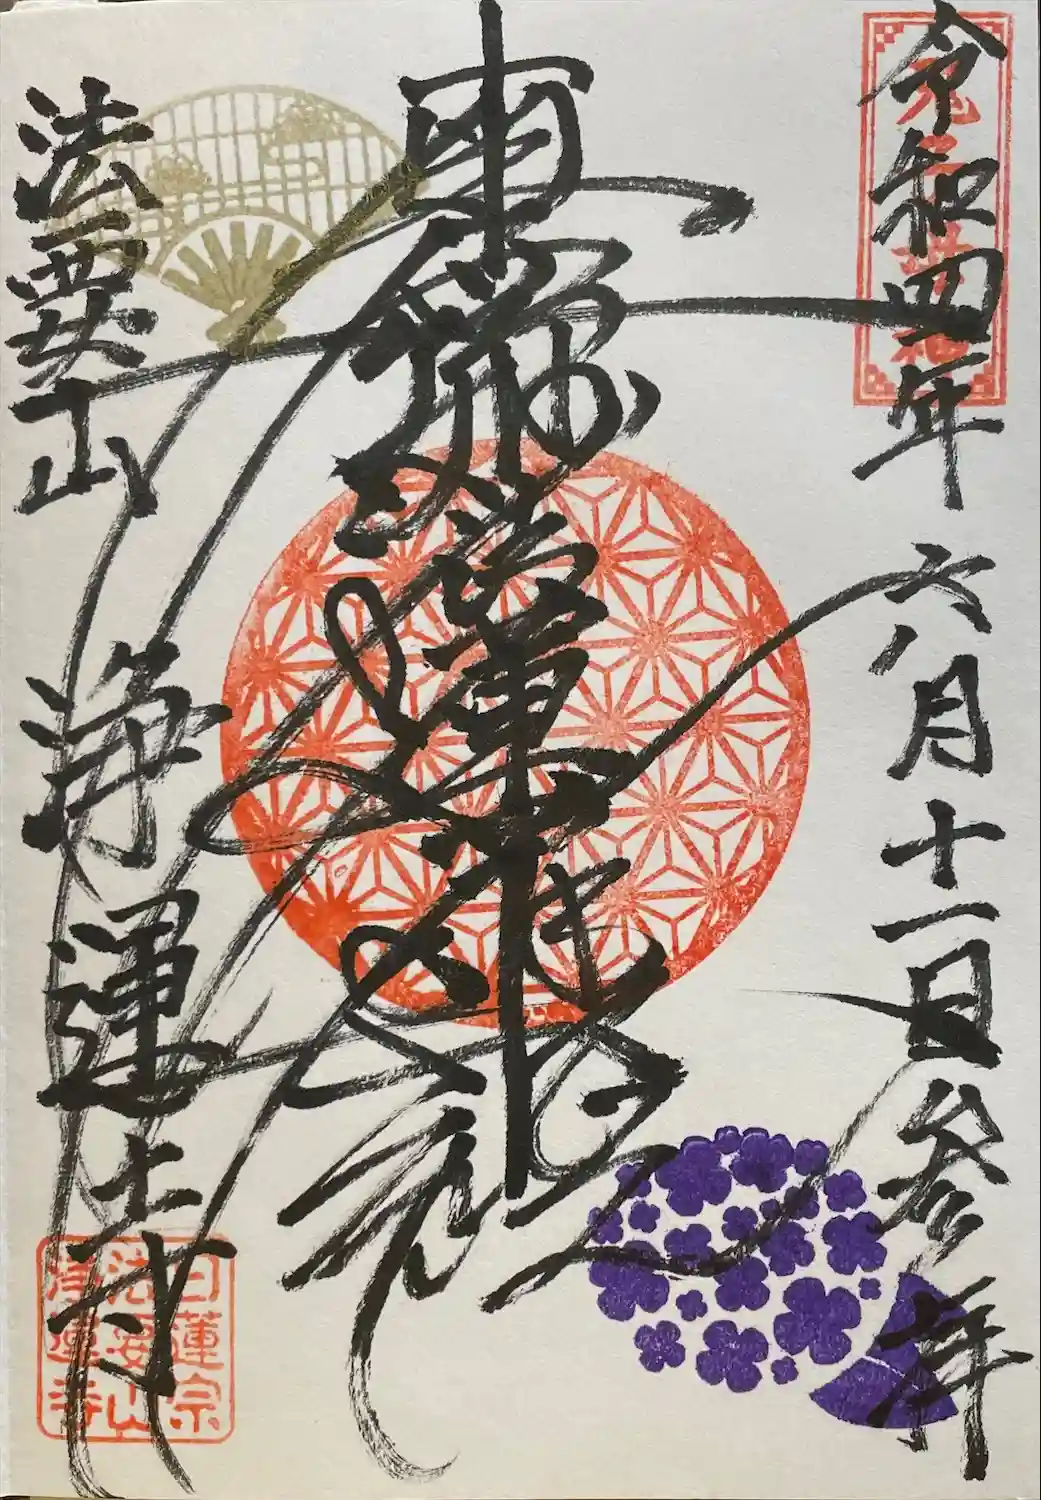 令和四年 六月十一日参拝
南無妙法蓮華経
法要山 浄運寺
日蓮宗